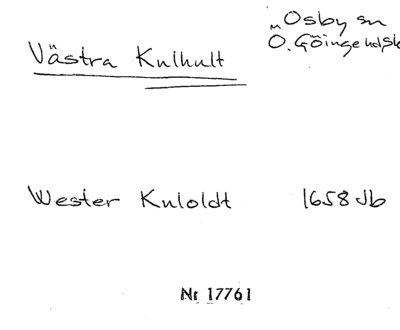 Västra Kulhult
„Osby sn
Ö. Göinge hd, Sk
Wester Kuloldt 1658 Jb
Nr 17761